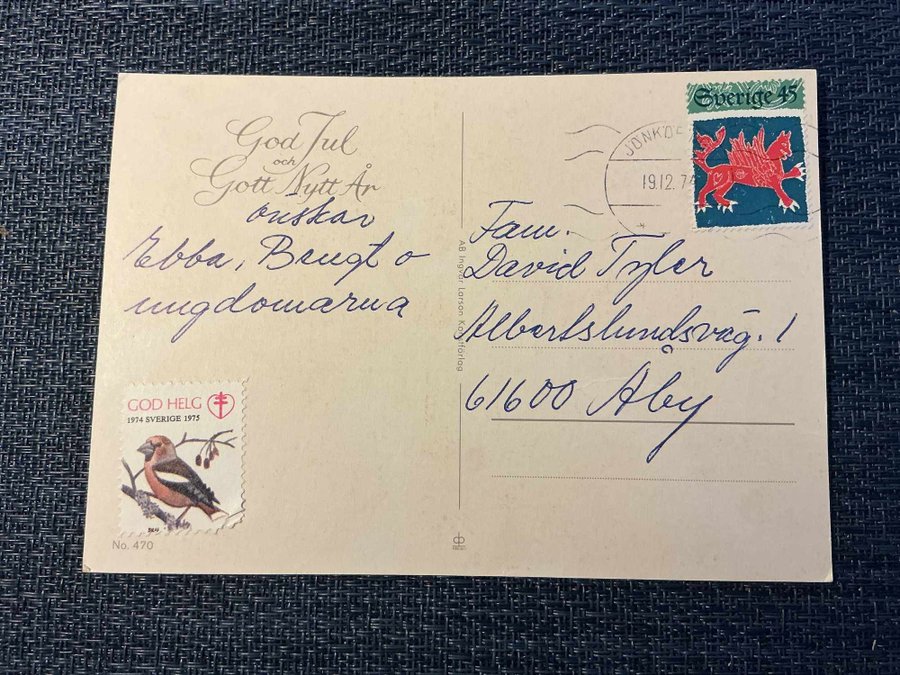 God Jul
och
Gott Nytt År
önskar
Ebba, Bengt o
ungdomarna
GOD HELG
1974 SVERIGE 1975
No. 470
AB Ingvar Larson Konstförlag
Sverige 45
19.12.74
Fam.
David Tyler
Albertslundsväg. 1
61600 Åby